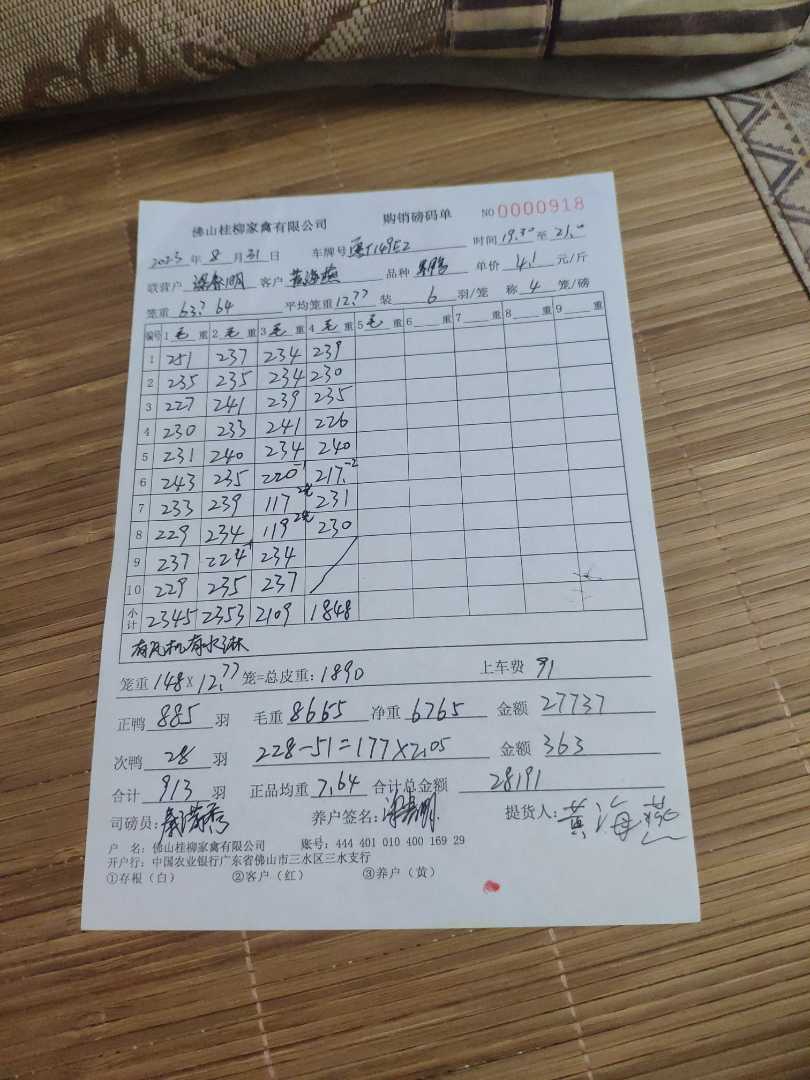 佛山桂柳家禽有限公司 购销磅码单 NO 0000918
2023年8月31日 车牌号 粤T149E2 时间 19.30 至 21.00
联营户 客户 黄海燕 品种 单价 4.1 元/斤
笼重 63.9 64 平均笼重 12.77 装 6 羽/笼 称 4 笼/磅
编号 1 毛 重 2 毛 重 3 毛 重 4 毛 重 5 毛 重 6 重 7 重 8 重 9 重
1 251 237 234 239
2 235 235 234 230
3 227 241 239 235
4 230 233 241 226
5 231 240 234 240
6 243 235 220-1 217-2
7 233 239 117 2笼 231
8 229 234 119 2笼 230
9 237 224-1 234
10 229 235 237
小计 2345 2353 2109 1848
有风机有水淋
笼重 148 X 12.77 笼=总皮重: 1890 上车费 91
正鸭 885 羽 毛重 8665 净重 6765 金额 27737
次鸭 28 羽 228-51=177×2.05 金额 363
合计 913 羽 正品均重 7.64 合计总金额 28191
司磅员: 养户签名: 提货人: 黄海燕
户 名: 佛山桂柳家禽有限公司 账号: 444 401 010 400 169 29
开户行: 中国农业银行广东省佛山市三水区三水支行
①存根(白) ②客户(红) ③养户(黄)